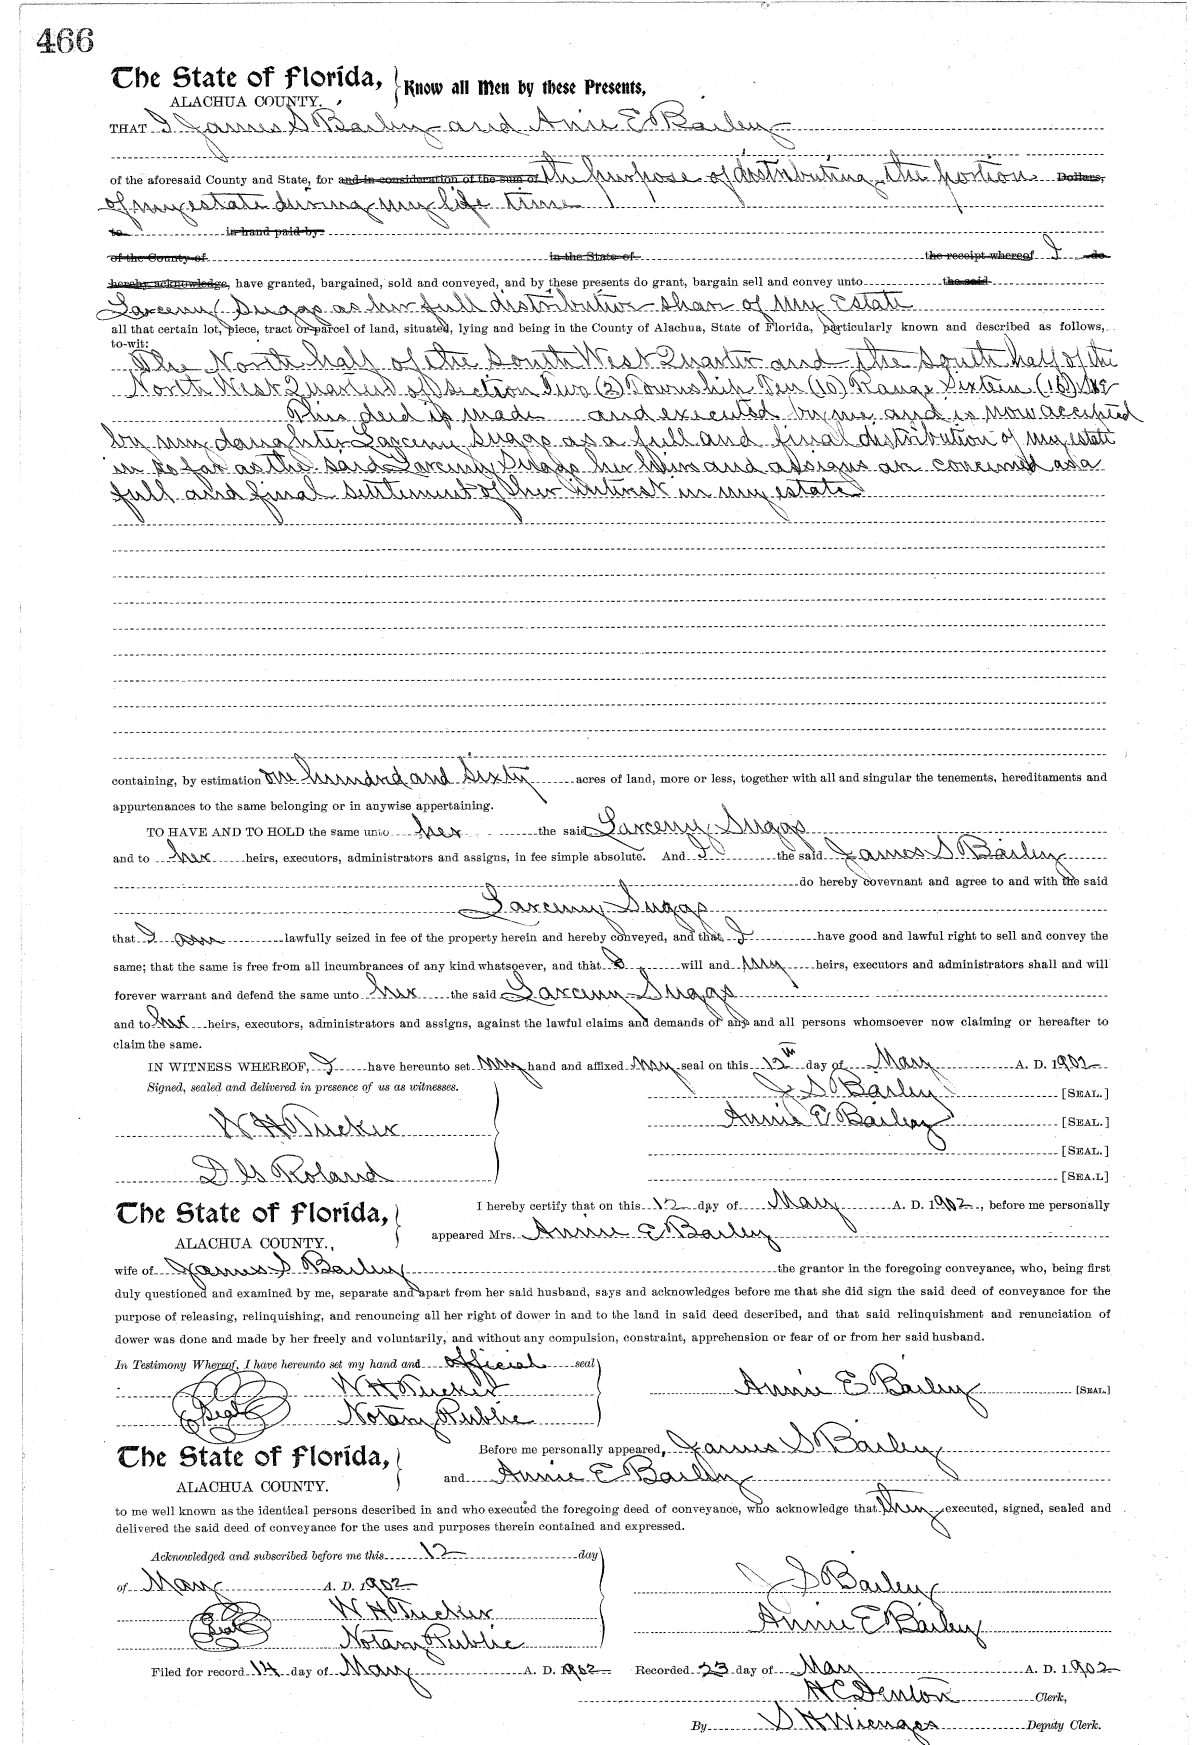 466
The State of Florida, } Know all Men by these Presents,
ALACHUA COUNTY.
THAT I James S Bailey and Anie E Bailey
of the aforesaid County and State, for and in consideration of the sum of the purpose of distributing the portion Dollars,
of my estate during my life time
to in hand paid by
of the County of in the State of the receipt whereof I do
hereby acknowledge, have granted, bargained, sold and conveyed, and by these presents do grant, bargain sell and convey unto the said
Larceny Suggs as her full distribution share of My Estate
all that certain lot, piece, tract or parcel of land, situated, lying and being in the County of Alachua, State of Florida, particularly known and described as follows,
to-wit:
The North half of the South West Quarter and the South half of the
North West Quarter of Section Two (2) Township Ten (10) Range Sixteen (16)
This deed is made and executed by me and is now accepted
by my daughter Larceny Suggs as a full and final distribution of my estate
in so far as the said Larceny Suggs her heirs and assigns are concerned as a
full and final settlement of her interest in my estate
containing, by estimation one hundred and sixty acres of land, more or less, together with all and singular the tenements, hereditaments and
appurtenances to the same belonging or in anywise appertaining.
TO HAVE AND TO HOLD the same unto her the said Larceny Suggs
and to her heirs, executors, administrators and assigns, in fee simple absolute. And I the said James S Bailey
do hereby covevnant and agree to and with the said
Larceny Suggs
that I am lawfully seized in fee of the property herein and hereby conveyed, and that I have good and lawful right to sell and convey the
same; that the same is free from all incumbrances of any kind whatsoever, and that I will and my heirs, executors and administrators shall and will
forever warrant and defend the same unto her the said Larceny Suggs
and to her heirs, executors, administrators and assigns, against the lawful claims and demands of any and all persons whomsoever now claiming or hereafter to
claim the same.
IN WITNESS WHEREOF, I have hereunto set my hand and affixed my seal on this 12th day of May A. D. 1902
Signed, sealed and delivered in presence of us as witnesses.
J S Bailey [SEAL.]
W H Tucker Annie E Bailey [SEAL.]
[SEAL.]
D G Roland [SEA.L]
The State of Florida, } I hereby certify that on this 12 day of May A. D. 1902, before me personally
ALACHUA COUNTY., appeared Mrs. Annie E Bailey
wife of James S Bailey the grantor in the foregoing conveyance, who, being first
duly questioned and examined by me, separate and apart from her said husband, says and acknowledges before me that she did sign the said deed of conveyance for the
purpose of releasing, relinquishing, and renouncing all her right of dower in and to the land in said deed described, and that said relinquishment and renunciation of
dower was done and made by her freely and voluntarily, and without any compulsion, constraint, apprehension or fear of or from her said husband.
In Testimony Whereof, I have hereunto set my hand and official seal
W H Tucker Annie E Bailey [SEAL.]
Seal Notary Public
The State of Florida, } Before me personally appeared, James S Bailey
ALACHUA COUNTY. and Annie E Bailey
to me well known as the identical persons described in and who executed the foregoing deed of conveyance, who acknowledge that they executed, signed, sealed and
delivered the said deed of conveyance for the uses and purposes therein contained and expressed.
Acknowledged and subscribed before me this 12 day
of May A. D. 1902 J S Bailey
Seal W H Tucker Annie E Bailey
Notary Public
Filed for record 14 day of May A. D. 1902 Recorded 23 day of May A. D. 1902
H C Denton Clerk,
By S H Wienges Deputy Clerk.